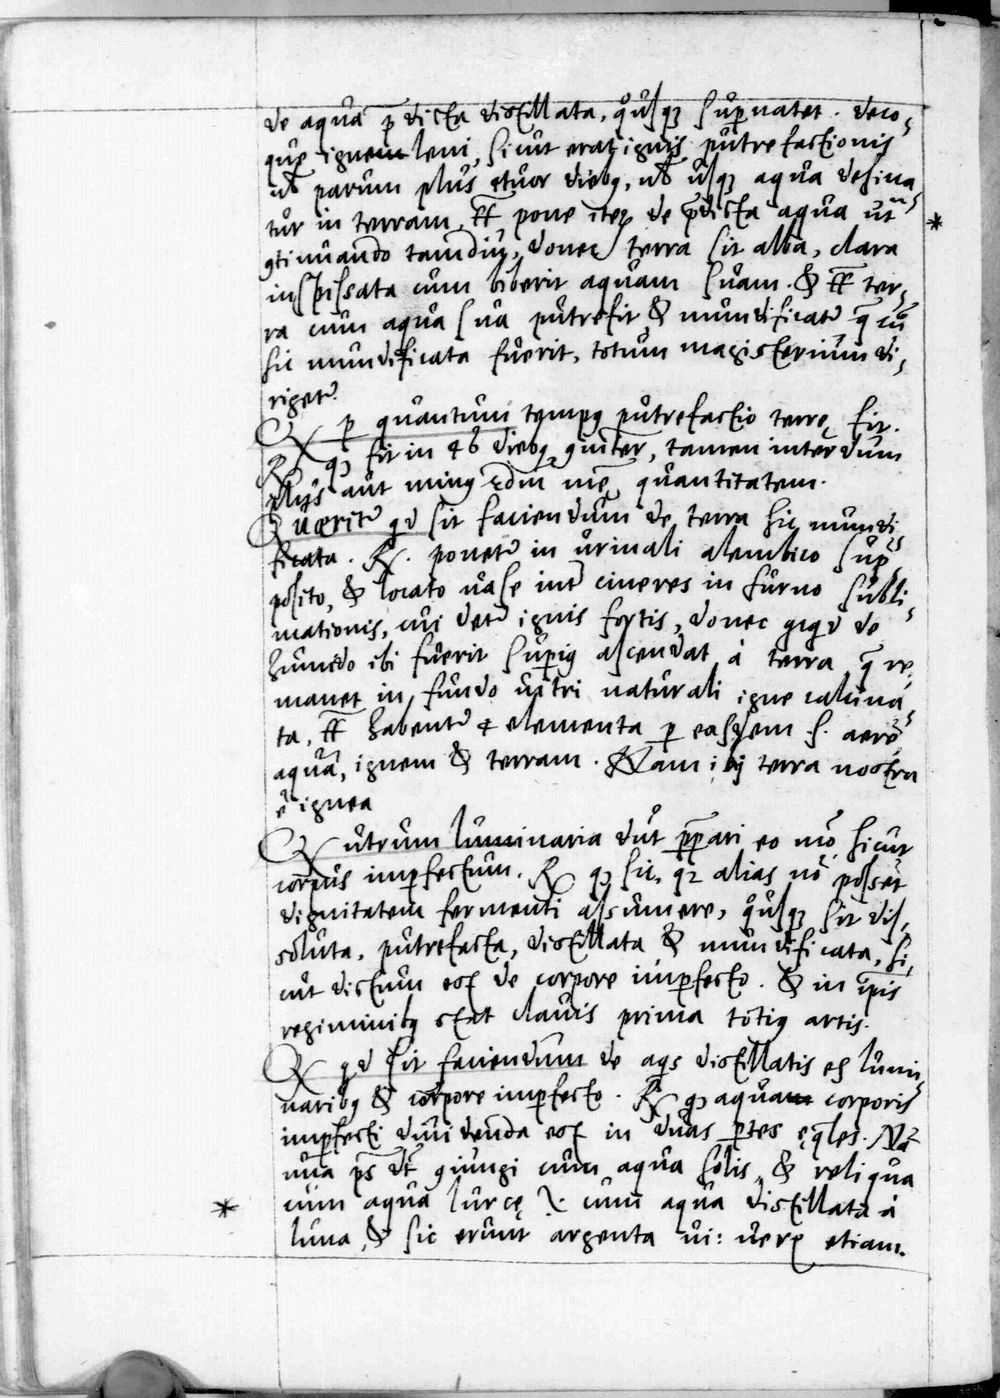 de aqua p̄dicta distillata, quousq̨ sup̱natet. deco⸗
que igne leni, sicut erat ignis putrefactionis
uł parum plus quatuor diebꝰ, uł usq̨ aqua desina⸗
tur in terram, & pone iteꝝ de p̄dicta aqua ut
ꝯtinuando tamdiu, donec terra sit alba, clara
inspissata cum biberit aquam suam. & ter⸗
ra cum aqua sua putrefit & mundificatr̃ q̄ cũ
sic mundificata fuerit, totum magisterium di⸗
rigetr̃.
Q p̱ quantum tempꝰ putrefactio terrę fit.
R. qꝫ fit in 46 diebꝰ ꝯiter, tamen interdum
plus aut minꝰ sc̃dm mę quantitatem.
Quęritr̃ qd sit faciendum de terra sic mundi⸗
ficata. R. ponetr̃ in urinali alembico sup̱⸗
posito, & locato uase intr̃ cineres in furno subli⸗
mationis, cui detr̃ ignis fortis, donec qͥcqͥd de
humido ibi fuerit sup̱iꝰ ascendat à terra q̄ re⸗
manet in fundo uitri naturali igne calcina⸗
ta, habentr̃ 4 elementa p̱ easdem .s. aerē
aquā, ignem & terram. Nam ibi terra nostra
ē ignea
Q utrum luminaria dn̄t p̱parari eo mō, sicut
corpus imp̱fectum. R qꝫ sic, qꝛ alias nō posset
dignitatem fermenti assumere, quousq̨ sit dis⸗
soluta, putrefacta, distillata & mundificata, si⸗
cut dictum est de corpore imp̱fecto. & in ip̄is
regiminibꝰ stat clauis prima totiꝰ artis.
Q qd sit faciendum de aq̱s distillatis ex lumi⸗
naribꝰ & corpore imp̱fecto. R qꝫ aqua corporis
imp̱fecti diuidenda est in duas p̱tes ęq̄les. Nā
una p̄s dꝫ ꝯiungi cum aqua solis, & reliqua
cum aqua lunę .i. cum aqua distillata à
luna, & sic erunt argenta ui: uerę etiam.